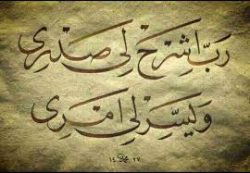 رَبِّ اشْرَحْ لِي صَدْرِي
وَيَسِّرْ لِي أَمْرِي
١٤٢٧